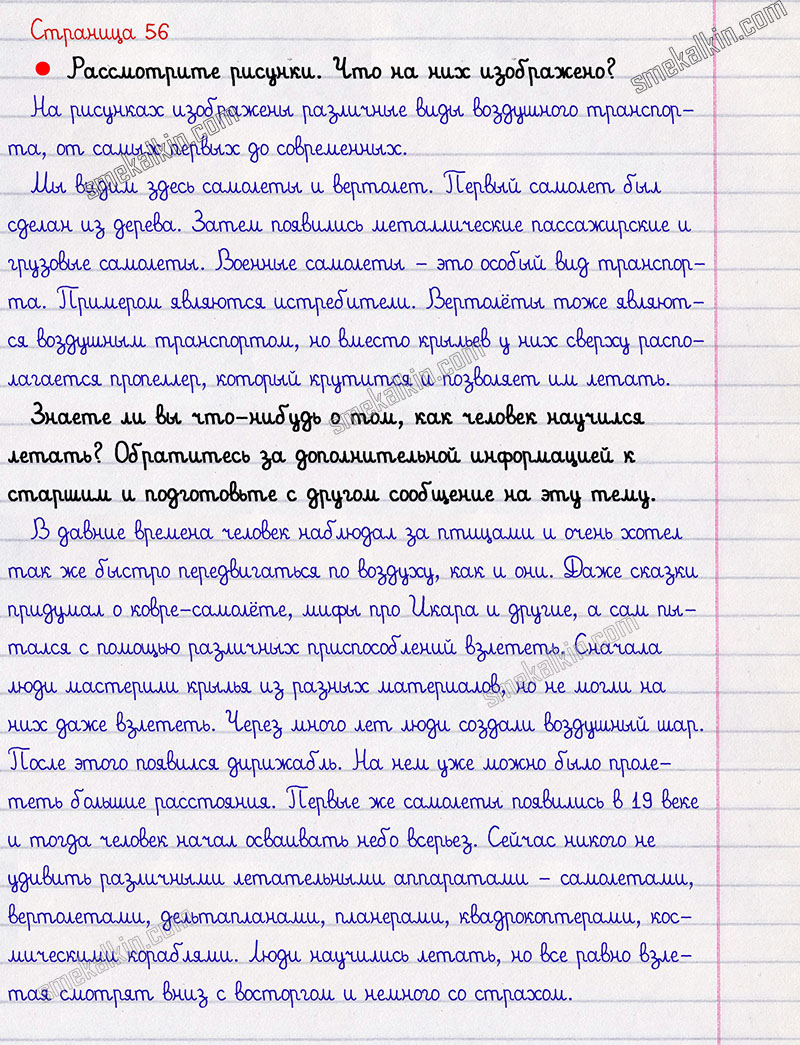 Страница 56
smekalkin.com
Рассмотрите рисунки. Что на них изображено?
На рисунках изображены различные виды воздушного транспор-
та, от самых первых до современных.
smekalkin.com
Мы видим здесь самолеты и вертолет. Первый самолет был
сделан из дерева. Затем появились металлические пассажирские и
грузовые самолеты. Военные самолеты – это особый вид транспор-
та. Примером являются истребители. Вертолёты тоже являют-
ся воздушным транспортом, но вместо крыльев у них сверху распо-
лагается пропеллер, который крутится и позволяет им летать.
smekalkin.com
Знаете ли вы что-нибудь о том, как человек научился
летать? Обратитесь за дополнительной информацией к
старшим и подготовьте с другом сообщение на эту тему.
В давние времена человек наблюдал за птицами и очень хотел
так же быстро передвигаться по воздуху, как и они. Даже сказки
придумал о ковре-самолёте, мифы про Икара и другие, а сам пы-
тался с помощью различных приспособлений взлететь. Сначала
люди мастерили крылья из разных материалов, но не могли на
smekalkin.com
них даже взлететь. Через много лет люди создали воздушный шар.
После этого появился дирижабль. На нем уже можно было проле-
теть большие расстояния. Первые же самолеты появились в 19 веке
и тогда человек начал осваивать небо всерьез. Сейчас никого не
удивить различными летательными аппаратами – самолетами,
вертолетами, дельтапланами, планерами, квадрокоптерами, кос-
мическими кораблями. Люди научились летать, но все равно взле-
smekalkin.com
тая смотрят вниз с восторгом и немного со страхом.